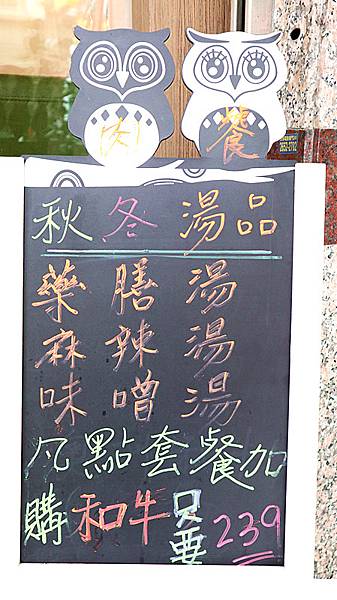 肉 餐
秋冬湯品
藥膳湯
麻辣湯
味噌湯
凡點套餐加
購和牛只要239